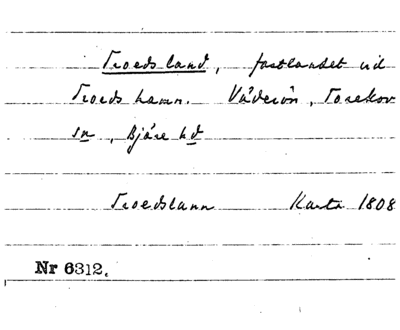 Troedsland, fastlandet vid
Troeds hamn. Väderön, Torekov
sn, Bjäre hd
Troedslann Karta 1808
Nr 6312.